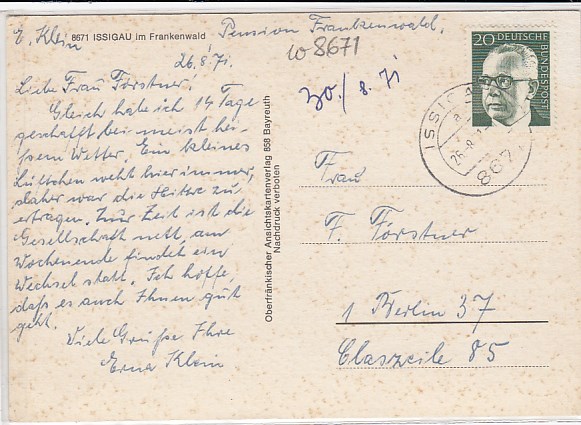 E. Klein
Pension Frankenwald,
8671 ISSIGAU im Frankenwald
w 8671
26.8.71.
30./8.71
Liebe Frau Förstner.
Gleich habe ich 14 Tage
geschafft bei meist hei-
ssem Wetter. Ein kleines
Lüftchen weht hier immer,
daher war die Hitze zu
ertragen. Zur Zeit ist die
Gesellschaft nett, am
Wochenende findet ein
Wechsel statt. Ich hoffe,
dass es auch Ihnen gut
geht.
Viele Grüsse Ihre
Erna Klein
Oberfränkischer Ansichtskartenverlag 858 Bayreuth
Nachdruck verboten
20 DEUTSCHE
BUNDESPOST
ISSIGAU
26.-8.71
867
Frau
F. Förstner
1 Berlin 37
Claszeile 85